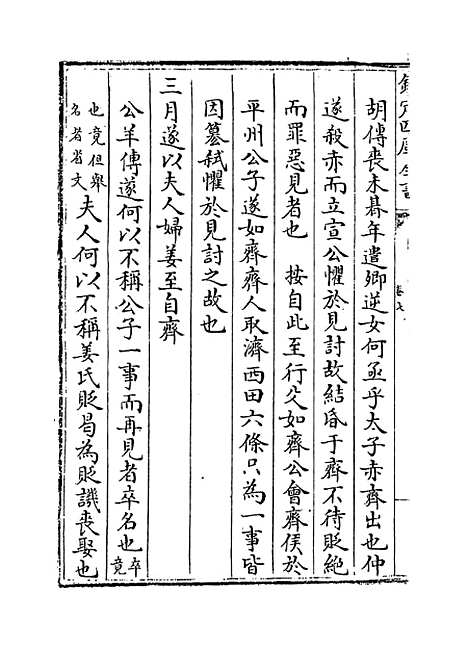 欽定四庫全書
胡傳喪未朞年遣卿逆女何亟乎太子赤齊出也仲
遂殺赤而立宣公懼於見討故結昏于齊不待貶絶
而罪惡見者也　按自此至行父如齊公會齊侯於
平州公子遂如齊齊人取濟西田六條只為一事皆
因簒弑懼於見討之故也
三月遂以夫人婦姜至自齊
公羊傳遂何以不稱公子一事而再見者卒名也卒竟
也竟但舉名者省文夫人何以不稱姜氏貶曷為貶譏喪娶也